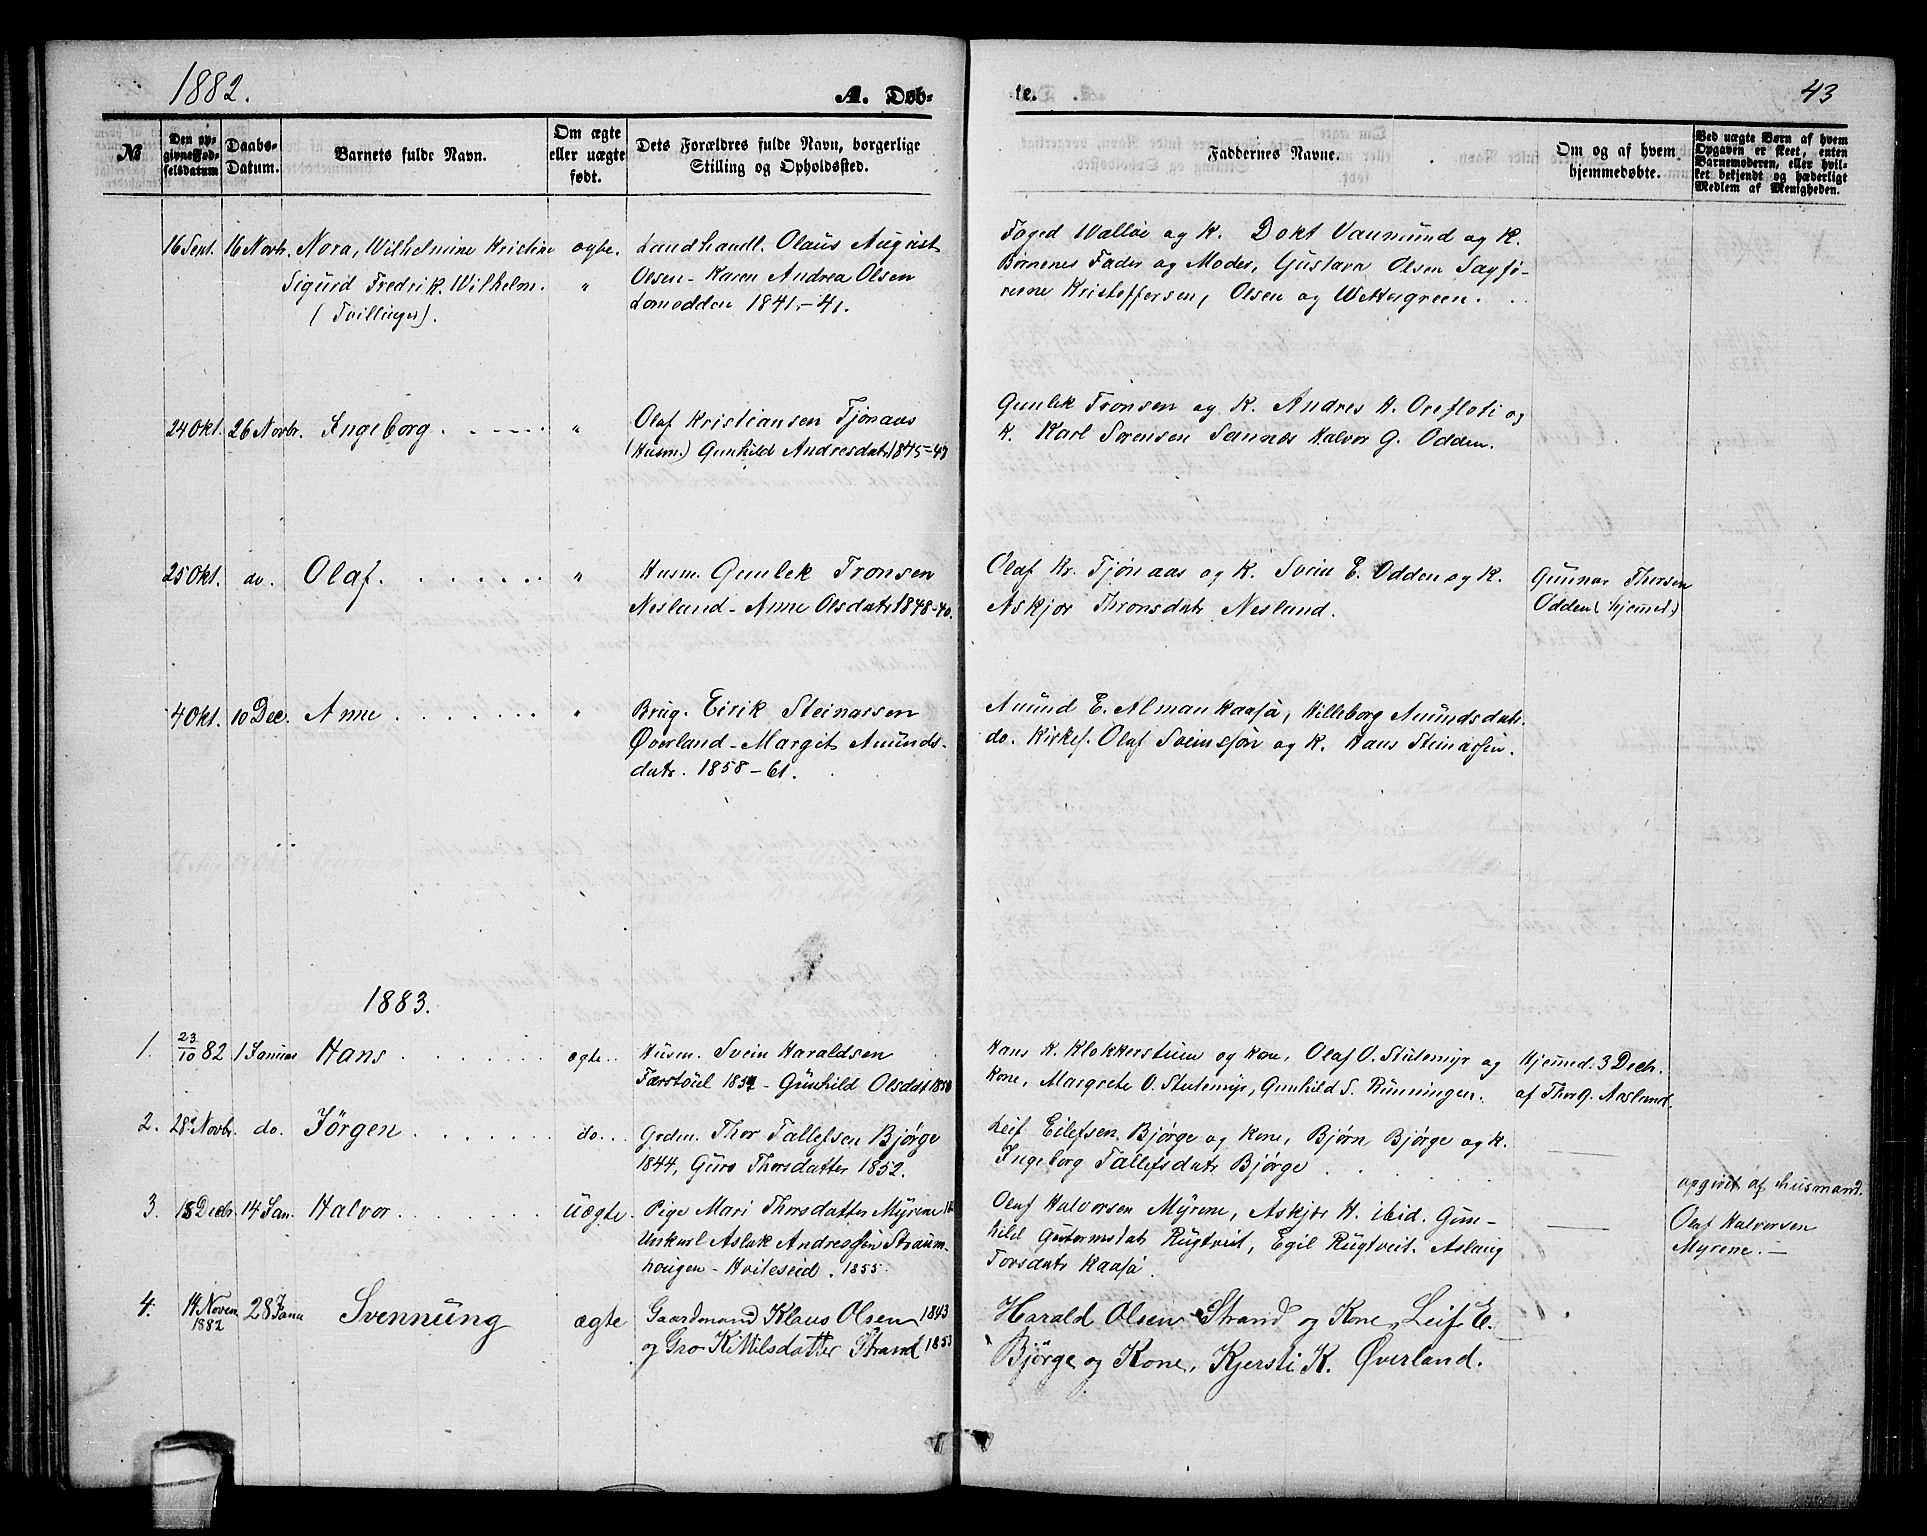 1882.
A. Døb-
te.
43
№
Den op-
givne Fød-
selsdatum
Daabs-
Datum.
Barnets fulde Navn.
Om ægte
eller uægte
født.
Dets Forældres fulde Navn, borgerlige
Stilling og Opholdssted.
Faddernes Navne.
Om og af hvem
hjemmedøbte.
Ved uægte Børn af hvem
Opgaven er skeet, enten
Barnemoderen, eller hvil-
ket bekjendt og hæderligt
Medlem af Menigheden.
16 Sept. 16 Novbr. Nora, Wilhelmine Kristine ægte. Landhandl. Olaus August
Sigurd Fredrik Wilhelm. " Olsen - Karen Andrea Olsen
(Tvillinger). Lomodden 1841.-41.
Foged Walløe og K. Dokt Vaumund og K.
Børnenes Fader og Moder, Gustava Olsen Sagfø-
rerne Kristoffersen, Olsen og Wettergreen.
24 Okt. 26 Novbr. Ingeborg. " Olaf Kristiansen Tjønaas
(Husm.) Gunhild Andresdatr 1845-47
Gunlek Tronsen og K. Andres H. Orefloti og
K. Karl Sørensen Sannes Halvor G. Odden.
25 Okt. do. Olaf. " Husm. Gunlek Tronsen
Nesland - Anne Olsdatr 1848-40.
Olaf Kr. Tjønaas og K. Svein E. Odden og K.
Askjær Thronsdatr Nesland.
Gunnar Thorsen
Odden (hjemed.)
4 Okt. 10 Dec. Anne " Brug. Eirik Steinarsen
Øverland - Margit Amunds-
datr. 1858-61.
Amund E. Almankaasa, Killeborg Amundsdatr.
do. Kirkes. Olaf Sveinssøn og K. Hans Steinarsen.
1883.
1. 23/10 82 1 Januar Hans ægte. Husm. Svein Haraldsen
Færstøiel 1857 - Gunhild Olsdatr 1850
Hans K. Klokkerstuen og Kone, Olaf O. Stutemyr og
Kone, Margrete O. Stutemyr, Gunhild S. Rünningen.
Hjemed. 3 Decb.
af Thor O. Aasland.
2. 28 Novbr. do. Jörgen do. Grdm. Thor Tallefsen Bjørge
1844, Guro Thorsdatter 1852.
Leif Eilefsen Bjørge og Kone, Bjørn Bjørge og K.
Ingeborg Tallefsdatr Bjørge
3. 18 Decbr. 14 Jan. Halvor Uægte. Pige Mari Thorsdatter Myrene
Ungkarl Aslak Andressen Straum-
haugen - Hviteseid. 1855.
Olaf Halvorsen Myrene, Askjær H. ibid. Gun-
hild Guttormsdatr Rugtveit, Egil Rugtveit. Aslaug
Torsdatr Kaasa.
opgivet af husmand.
Olaf Halvorsen
Myrene. -
4. 14 Novem 1882 28 Janu Svennüng ægte Gaardmand Klaus Olsen 1843
og Gro Kittilsdatter Strand 1853
Harald Olsen Strand og Kone, Leif E.
Bjørge og Kone, Kjersti K. Øverland.